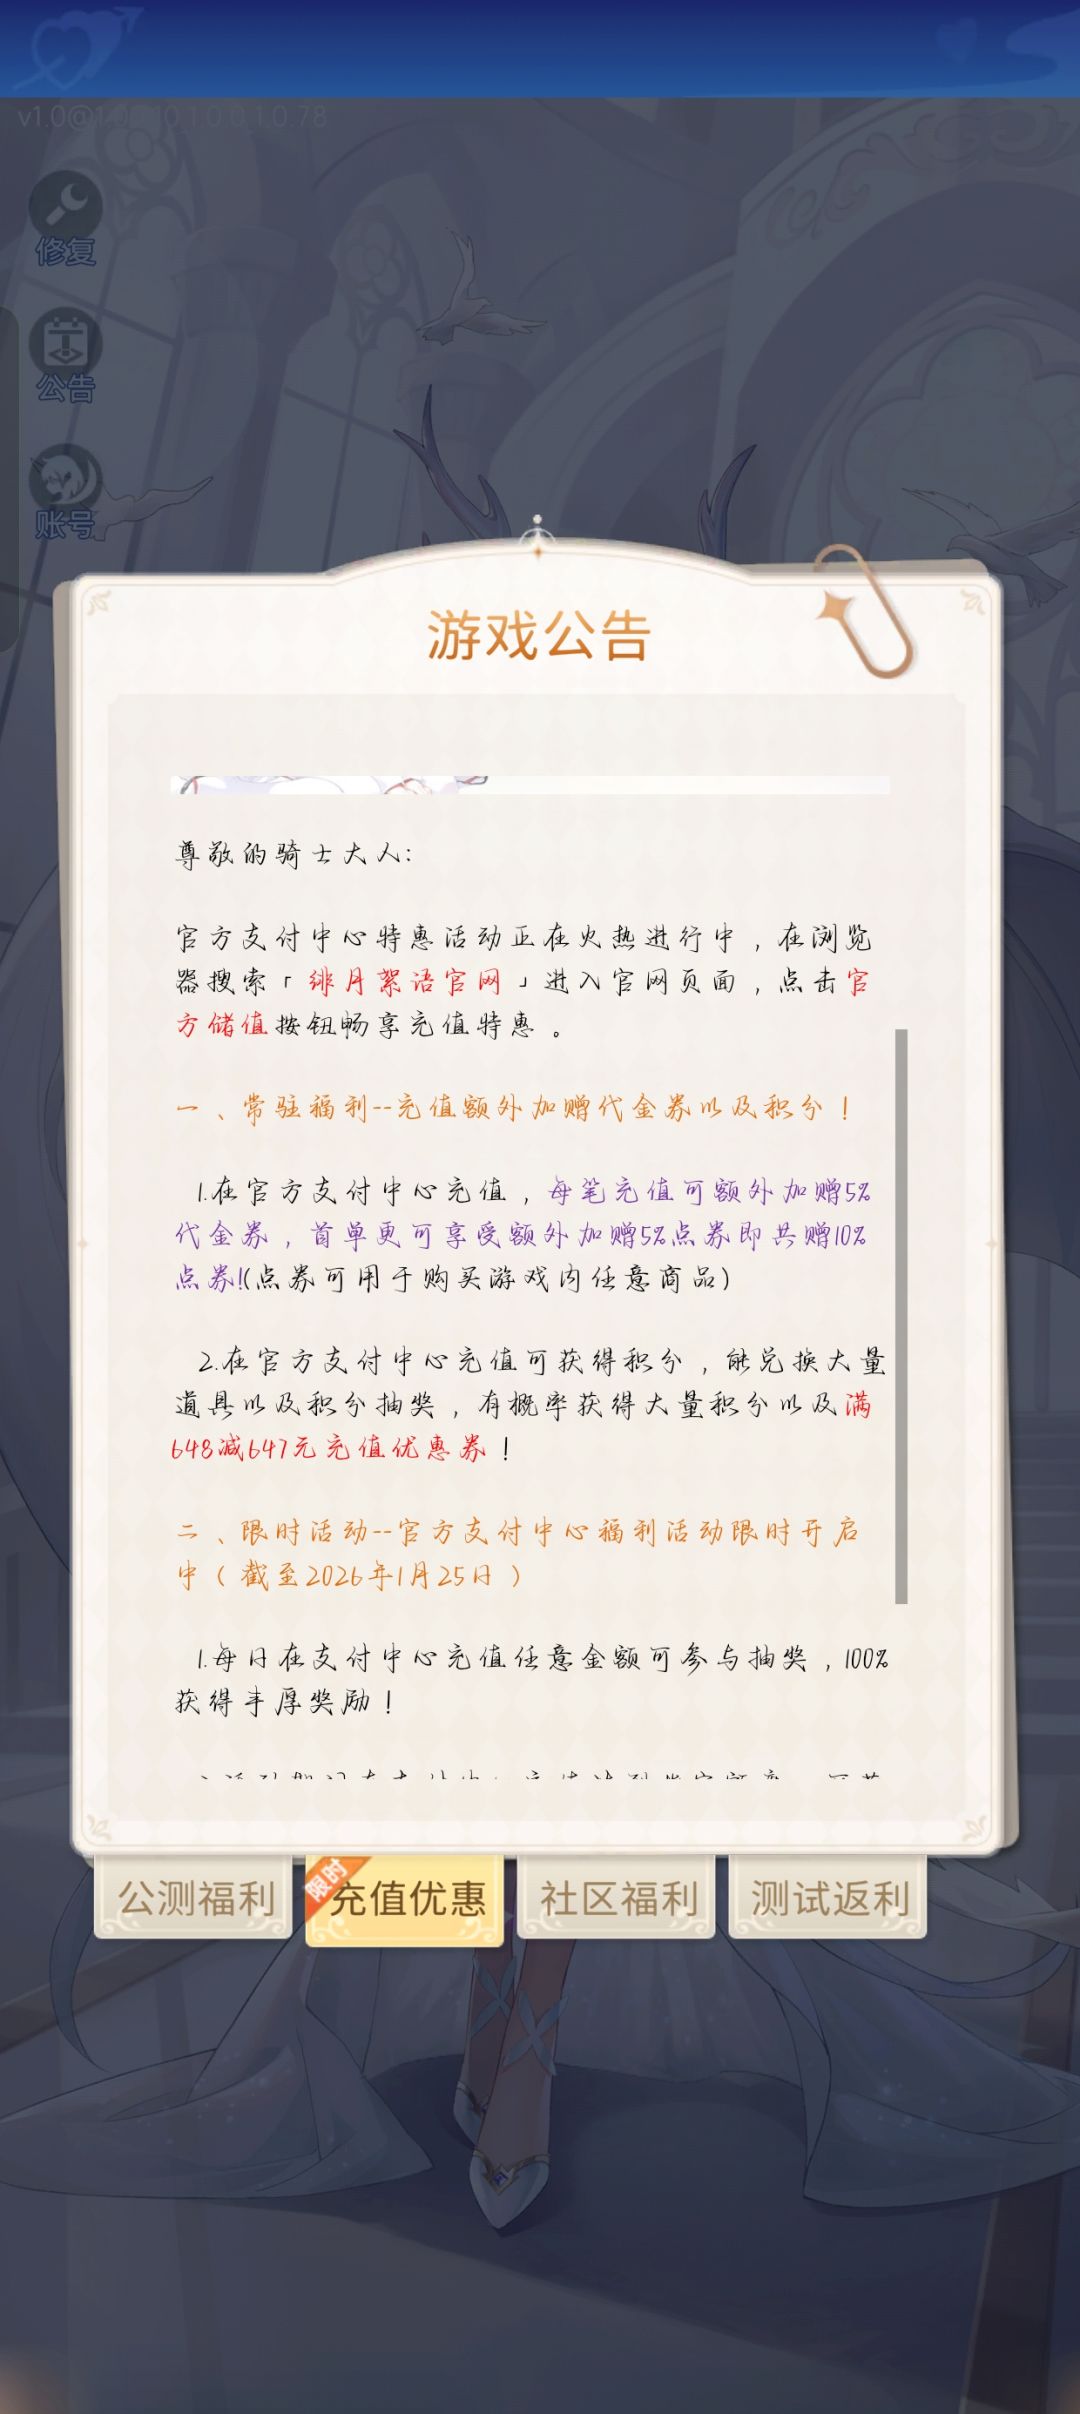 v1.0@1.0.0.10.1.0.0.1.0.78
修复
公告
账号
游戏公告
尊敬的骑士大人:
官方支付中心特惠活动正在火热进行中，在浏览
器搜索「绯月絮语官网」进入官网页面，点击官
方储值按钮畅享充值特惠。
一、常驻福利--充值额外加赠代金券以及积分！
1.在官方支付中心充值，每笔充值可额外加赠5%
代金券，首单更可享受额外加赠5%点券即共赠10%
点券!(点券可用于购买游戏内任意商品)
2.在官方支付中心充值可获得积分，能兑换大量
道具以及积分抽奖，有概率获得大量积分以及满
648减647元充值优惠券！
二、限时活动--官方支付中心福利活动限时开启
中（截至2026年1月25日）
1.每日在支付中心充值任意金额可参与抽奖，100%
获得丰厚奖励！
公测福利
限时
充值优惠
社区福利
测试返利